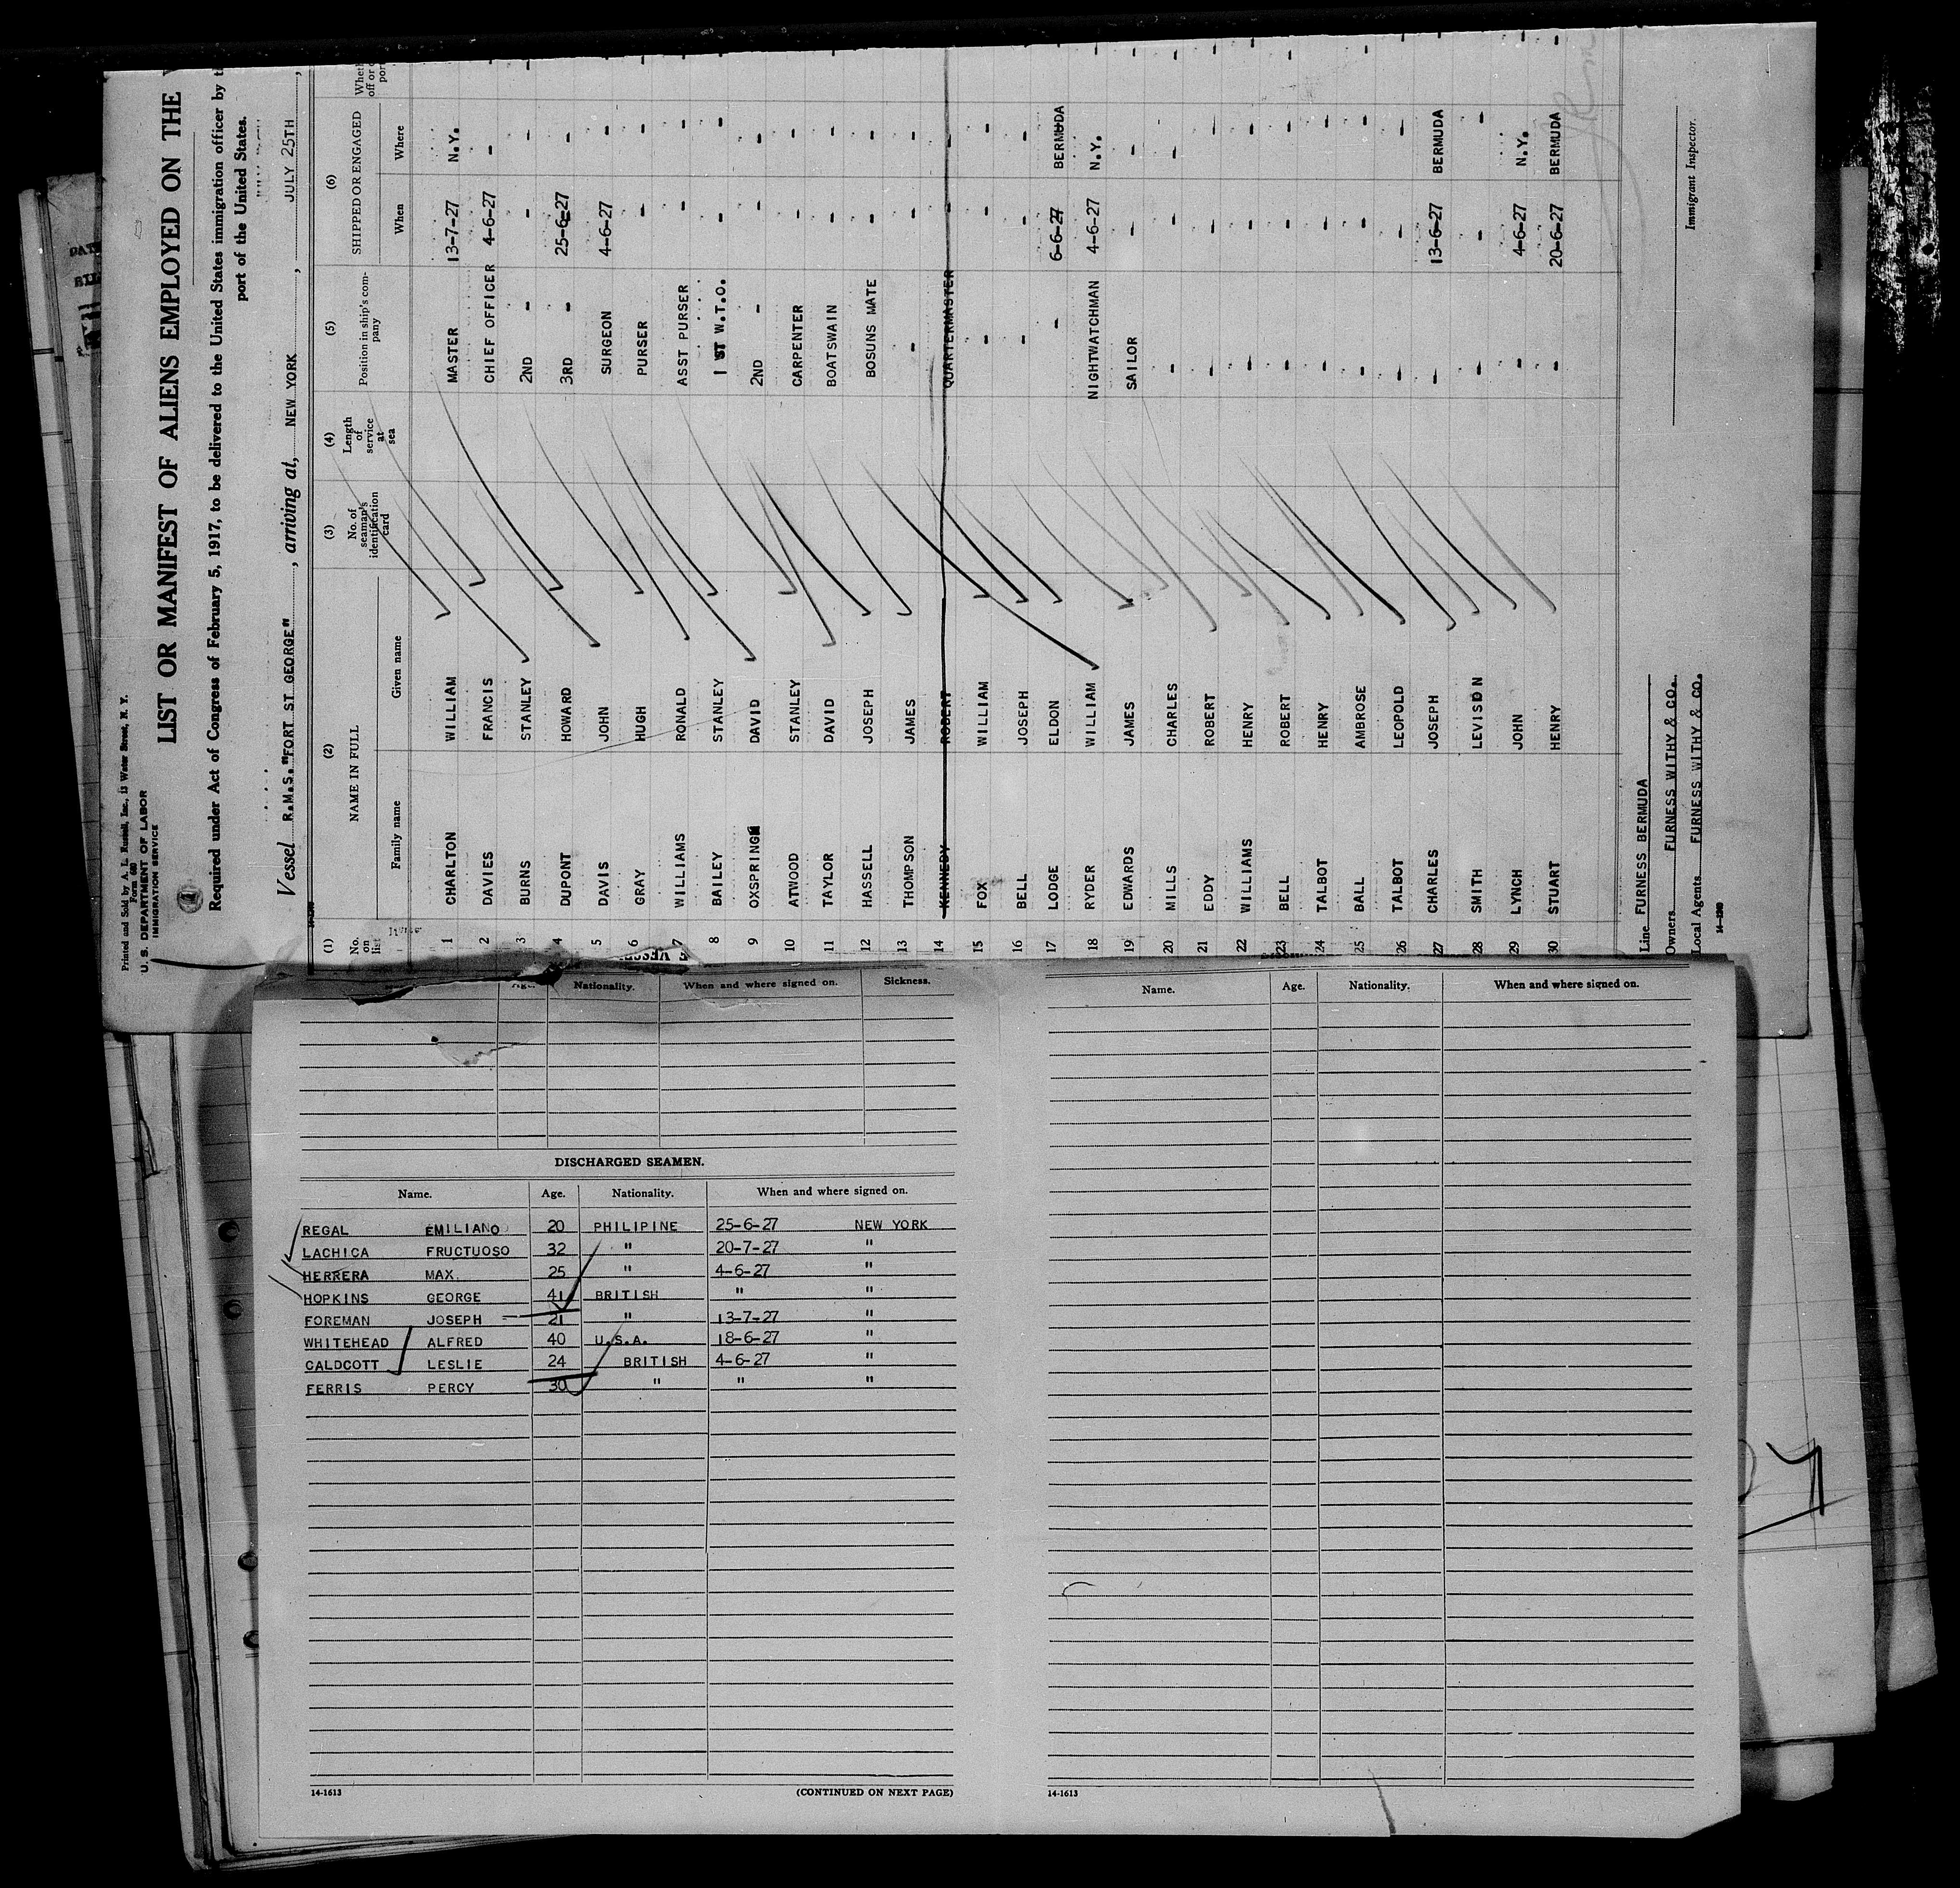 Printed and Sold by A. L. Russell, Inc., 13 Water Street, N. Y.
Form 680
U. S. DEPARTMENT OF LABOR
IMMIGRATION SERVICE
LIST OR MANIFEST OF ALIENS EMPLOYED ON THE
Required under Act of Congress of February 5, 1917, to be delivered to the United States immigration officer by
port of the United States.
Vessel R.M.S. "FORT ST GEORGE", arriving at, NEW YORK, JULY 25TH,
(1) (2) (3) (4) (5) (6)
No. on list NAME IN FULL No. of seaman's identification card Length of service at sea Position in ship's company SHIPPED OR ENGAGED
Family name Given name When Where
1 CHARLTON WILLIAM MASTER 13-7-27 N.Y.
2 DAVIES FRANCIS CHIEF OFFICER 4-6-27 -
3 BURNS STANLEY 2ND - - -
4 DUPONT HOWARD 3RD - 25-6-27 -
5 DAVIS JOHN SURGEON 4-6-27 -
6 GRAY HUGH PURSER - -
7 WILLIAMS RONALD ASST PURSER - -
8 BAILEY STANLEY 1 ST W.T.O. - -
9 OXSPRING DAVID 2ND - - -
10 ATWOOD STANLEY CARPENTER - -
11 TAYLOR DAVID BOATSWAIN - -
12 HASSELL JOSEPH BOSUNS MATE - -
13 THOMPSON JAMES - - -
14 KENNEDY ROBERT QUARTERMASTER - -
15 FOX WILLIAM - - -
16 BELL JOSEPH - - -
17 LODGE ELDON - 6-6-27 BERMUDA
18 RYDER WILLIAM NIGHTWATCHMAN 4-6-27 N.Y.
19 EDWARDS JAMES SAILOR - -
20 MILLS CHARLES - - -
21 EDDY ROBERT - - -
22 WILLIAMS HENRY - - -
23 BELL ROBERT - - -
24 TALBOT HENRY - - -
25 BALL AMBROSE - - -
26 TALBOT LEOPOLD - - -
27 CHARLES JOSEPH - 13-6-27 BERMUDA
28 SMITH LEVISON - - -
29 LYNCH JOHN - 4-6-27 N.Y.
30 STUART HENRY - 20-6-27 BERMUDA
Line FURNESS BERMUDA
Owners FURNESS WITHY & CO.
Local Agents FURNESS WITHY & CO.
Immigrant Inspector.
14-1240
Age. Nationality. When and where signed on. Sickness.
DISCHARGED SEAMEN.
Name. Age. Nationality. When and where signed on.
REGAL EMILIANO 20 PHILIPINE 25-6-27 NEW YORK
LACHICA FRUCTUOSO 32 " 20-7-27 "
HERRERA MAX. 25 " 4-6-27 "
HOPKINS GEORGE 41 BRITISH " "
FOREMAN JOSEPH 21 " 13-7-27 "
WHITEHEAD ALFRED 40 U.S.A. 18-6-27 "
CALDCOTT LESLIE 24 BRITISH 4-6-27 "
FERRIS PERCY 30 " " "
14-1613 (CONTINUED ON NEXT PAGE)
Name. Age. Nationality. When and where signed on.
14-1613